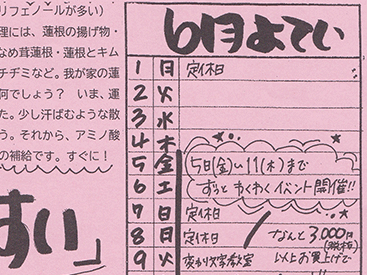 リフェノールが多い）
理には、蓮根の揚げ物・
なめ茸蓮根・蓮根とキム
チヂミなど。我が家の蓮
何でしょう？　いま、運
た。少し汗ばむような散
う。それから、アミノ酸
の補給です。すぐに！
すい」
6月よてい
1 日 定休日
2 火
3 水
4 木
5 金 5日(金)〜11(木)まで
6 土 ずっと わくわくイベント開催!!
7 日 定休日
8 日 定休日 なんと3,000円
(税抜)
9 火 変わり文字教室 以上お買上げで